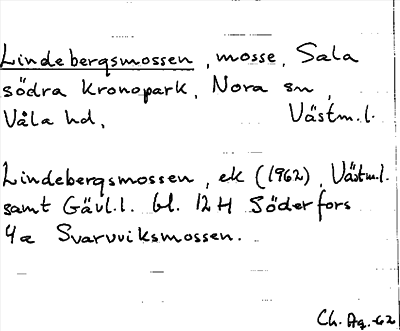 Lindebergsmossen, mosse, Sala
södra kronopark, Nora sn,
Våla hd, Västm.l.
Lindebergsmossen, ek (1962), Västm.l.
samt Gävl.l. bl. 12 H Söderfors
4a Svarvviksmossen.
Ch. Ag. -62